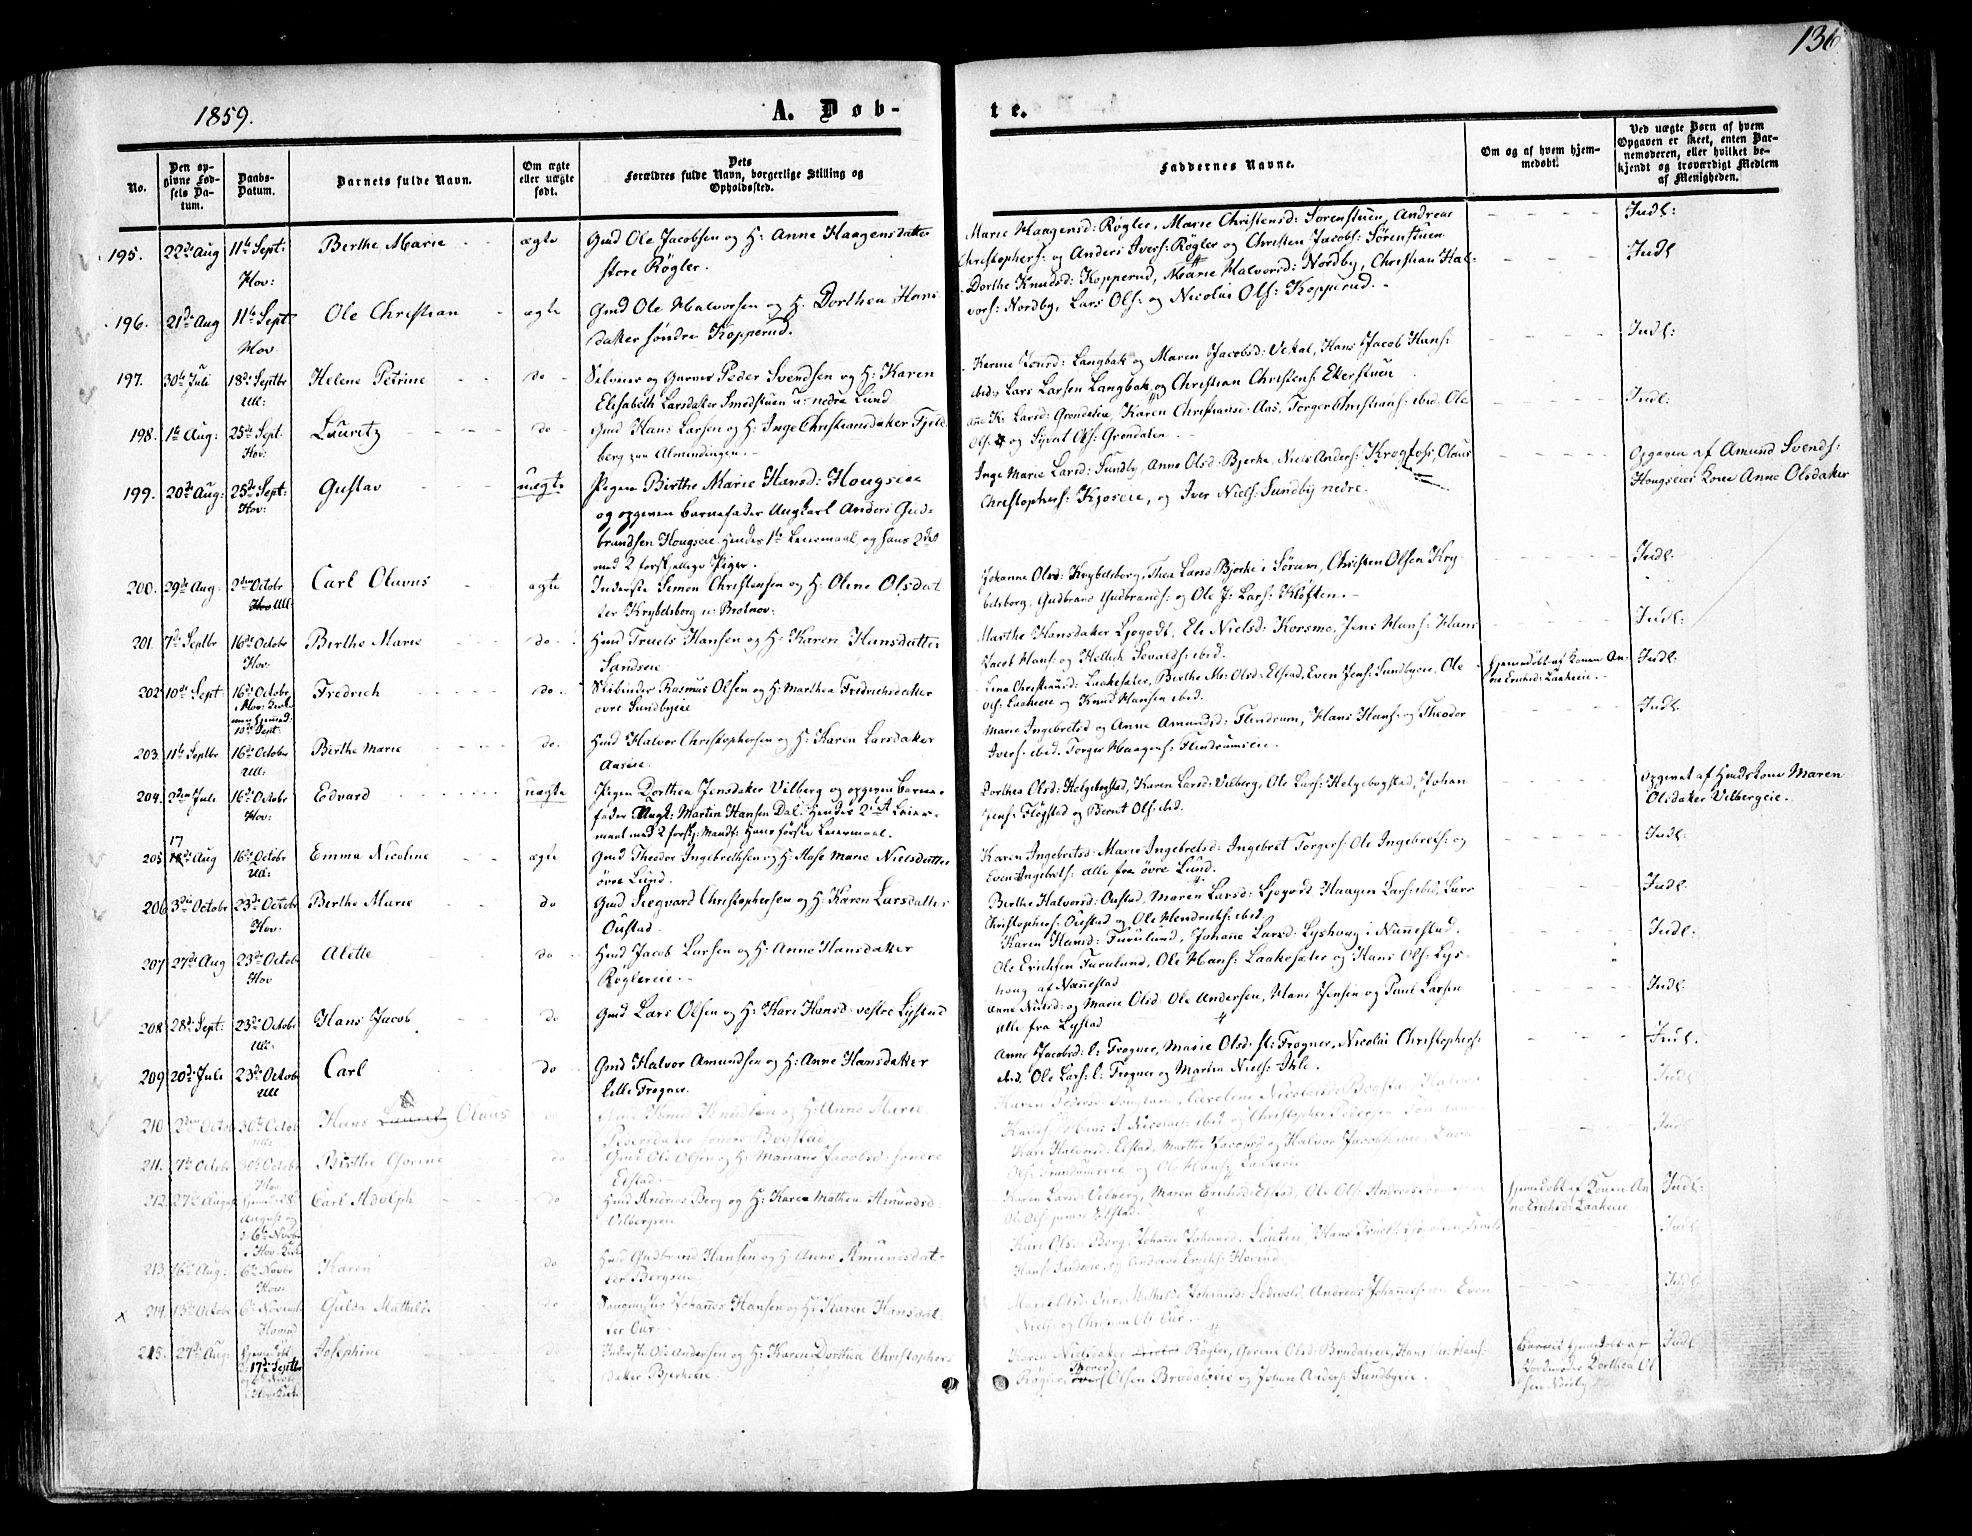 136
1859.
A. Døb-
te.
No.
Den op-
givne Fød-
sels Da-
tum.
Daabs-
Datum.
Barnets fulde Navn.
Om ægte
eller uægte
født.
Dets
Forældres fulde Navn, borgerlige Stilling og
Opholdssted.
Faddernes Navne.
Om og af hvem hjem-
medøbt.
Ved uægte Børn af hvem
Opgaven er skeet, enten Bar-
nemoderen, eller hvilket be-
kjendt og troværdigt Medlem
af Menigheden.
195. 22de Aug 11te Sept: Berthe Marie ægte Gmd Ole Jacobsen og H: Anne Haagensdatter
Hov: store Røgler.
Marie Haagensd: Røgler, Marie Christensd: Sørenstuen, Andreas Indl:
Christophers: og Anders Ivers: Røgler og Christen Jacobs: Sørenstuen
196. 21de Aug 11te Sept Ole Christian ægte Gmd Ole Halvorsen og H. Dorthea Hans
Hov datter søndre Kopperud.
Dorthe Knudsd: Kopperud, Marie Halvorsd: Nordby, Christian Hal- Indl
vors: Nordby, Lars Ols: og Nicolai Ols: Kopperud.
197. 30te Juli 18de Septbr Helene Petrine do Selveier og Garver Peder Svendsen og H: Karen
Ull: Elisabeth Larsdatter Smedstuen u: nedre Lund
Langbak og Maren Jacobsd: Vetal, Hans Jacob Hans: Indl:
ibid, Lars Larsen Langbak og Christian Christens: Ekerstuen
198. 1te Aug: 25de Sept. Lauritz do Gmd Hans Larsen og H: Inge Christiansdatter Fjeld
Hov: berg paa Almindingen.
Larsd: Grøndalen, Karen Christiansd: Aas, Torger Christians: ibid. Ole Indl:
Ols: og Syvert Ols: Grøndalen.
199. 20de Aug: 25de Sept: Gustav uægte Pigen Birthe Marie Hansd: Hougseie
Hov: og opgiven Barnefader Ungkarl Anders Gud-
brandsen Hougseie. Hendes 1te Leiermaal, og hans 2det
med 2 forskjellige Piger.
Inge Marie Larsd: Sundby, Anne Olsd: Bjerke, Niels Anders: Krogfoss, Olaus
Christophers: Kjoseie, og Iver Niels: Sundby nedre.
Opgiven af Amund Svends:
Hougseies Kone Anne Olsdatter
200. 29de Aug 2den Octobr Carl Olavus ægte Inderste Simon Christensen og H: Oline Olsdat
Ull: ter Krybelsborg u: Bratnov:
Johanne Olsd: Krybelsborg, Thea Larsd Bjerke i Sørum, Christen Olsen Kry Indl:
belsborg, Gudbrand Gudbrands: og Ole J. Lars: Kløften.
201. 7de Septbr 16de Octobr Birthe Marie do Hmd Truels Hansen og H: Karen Hansdatter
Hov: Sandseie
Marthe Hansdatter Ljøgodt, Ele Nielsd: Korsmo, Jens Hans: Hans Indl:
Jacob Hans: og Hellik Sevalds: ibid.
202. 10de Sept 16de Octobr Fredrich do Skibinder Rasmus Olsen og H: Marthea Fredrichsdatter
øvre Sundbyeie
Lina Christiansd: Laakesæter, Birthe Ms: Olsd: Elstad, Even Jens: Sundbyeie, Ole Hjemmedøbt af Konen An- Indl:
Ols: Laakeeie og Knud Hansen ibid. ne Erichsd: Laakeeie.
203. 11te Septbr 16de Octobr Birthe Marie do. Hmd Halvor Christophersen og H: Karen Larsdatter
Ull: Aaseie.
Marie Ingebretsd og Anne Amundsd: Flindrum, Hans Hans: og Theodor Indl:
Ivers: ibid. Torger Haagens: Flindrumseie.
204. 2den Juli 16de Octobr Edvard uægte Pigen Dorthea Jensdatter Vilberg og opgiven Barne-
Hov: fader Ungk: Martin Hansen Dal. Hendes 2det Leier-
maal med 2 forskj: Mandf: Hans første Leiermaal.
Dorthea Olsd: Helgebogstad, Karen Larsd: Vilberg, Ole Lars: Helgebogstad, Johan
Jens: Fløgstad og Bernt Ols: ibid.
Opgivet af Hmds Kone Maren
Olsdatter Vilbergeie.
205. 17 Aug 16de Octobr Emma Nicoline ægte Gmd Theodor Ingebrethsen og H: Hase Marie Nielsdatter
Ull: øvre Lund.
Karen Ingebretsd: Marie Ingebretsd: Ingebret Torgers: Ole Ingebrets: og Indl:
Even Ingebrets: alle fra øvre Lund.
206 3die Octobr 23de Octobr Birthe Marie do Gmd Siegvard Christophersen og H: Karen Larsdatter
Hov: Oustad.
Birthe Halvorsd: Oustad, Maren Larsd: Ljøgodt Haagen Lars: ibid, Lars Indl:
Christophers: Oustad og Ole Hendrichs: ibid
207 27de Aug 23de Octobr Alette do Hmd Jacob Larsen og H: Anne Hansdatter
Hov Røglereie.
Karen Hansd: Furulund, Johanne Larsd: Lyshoug i Nannestad. Indl:
Ole Erichsen Furulund, Ole Hans: Laakesæter og Hans Ols: Lys-
houg af Nannestad
208 28de Sept: 23de Octobr Hans Jacob do Gmd Lars Olsen og H: Kari Hansd: vestre Lystad
Ull:
Anne Nielsd: og Marie Olsd: Ole Andersen, Hans Jensen og Paul Larsen Indl:
alle fra Lystad
209 20de Juli 23de Octobr Carl do Gmd Halvor Amundsen og H: Anne Hansdatter
Ull lille Trogner.
Anne Jacobsd: l: Trogner, Marie Olsd: st: Trogner, Nicolai Christophers: Indl.
ibid, Ole Lars: l: Trogner og Martin Niels: Ihle.
210 2den Octobr 30te Octobr Hans Lauritz Olaus Gmd Knud Knudsen og H: Anne Marie
Pedersdatter søndre Bogstad
Karen Pedersd: Caroline Nicolaisd: Bogstad, Halvor Indl
Hans J. Nicolais: ibid og Christopher Pedersen
211. 7de Octobr 30te Octobr Birthe Gorine do Gmd Ole Olsen og H: Mariane Jacobsd: søndre
Hov Elstad.
Kari Halvorsd: Elstad, Marthe Jacobsd og Halvor Jacobs: ibid, Lars Indl
Ols: og Ole Hans: Laakeeie
212. 27de August Carl Adolph do Hmd Andreas Berg og H: Karen Mathea Amundsd:
August og Vilbergeie
6te Novbr
i Hov: Kirke
Karen Larsd: Vilberg, Maren Erichsd: Elstad, Ole Ols: Hjemmedøbt af Konen An Indl:
Elstad. ne Erichsd: Laakeeie
213. 16de Aug: 6te Novbr Karen do Hmd Gudbrand Hansen og H. Anne Amundsdat-
Hov: ter Bergseie
Kari Olsd: Berg, Johanne Johansd: Hans Truels: Indl
Hans: og Andreas Erichs: Hovind
x 214. 13de Octobr 6te Novembr Gulda Mathilde do Johannes Hansen og H: Karen Hansdat-
Hovind ter Our
Marie Olsd: Our, Mathilde Johannesd: Andreas Johannes: Even Indl
Niels: og Christian Ols: Our.
215. 27de Aug Josephine do Inderste Ole Andersen og H: Karen Dorthea Christophers
17de Septbr datter Bjerkeeie
Karen Nielsdatter Røgler, Gorine Olsd: Brudaleeie, Hans Indl
Røgler, Olsen Brudaleeie og Johan Anders: Sundbyeie. Barnet hjemmedøbt af
Jordmoder Dorthea Ol
sen Nordby